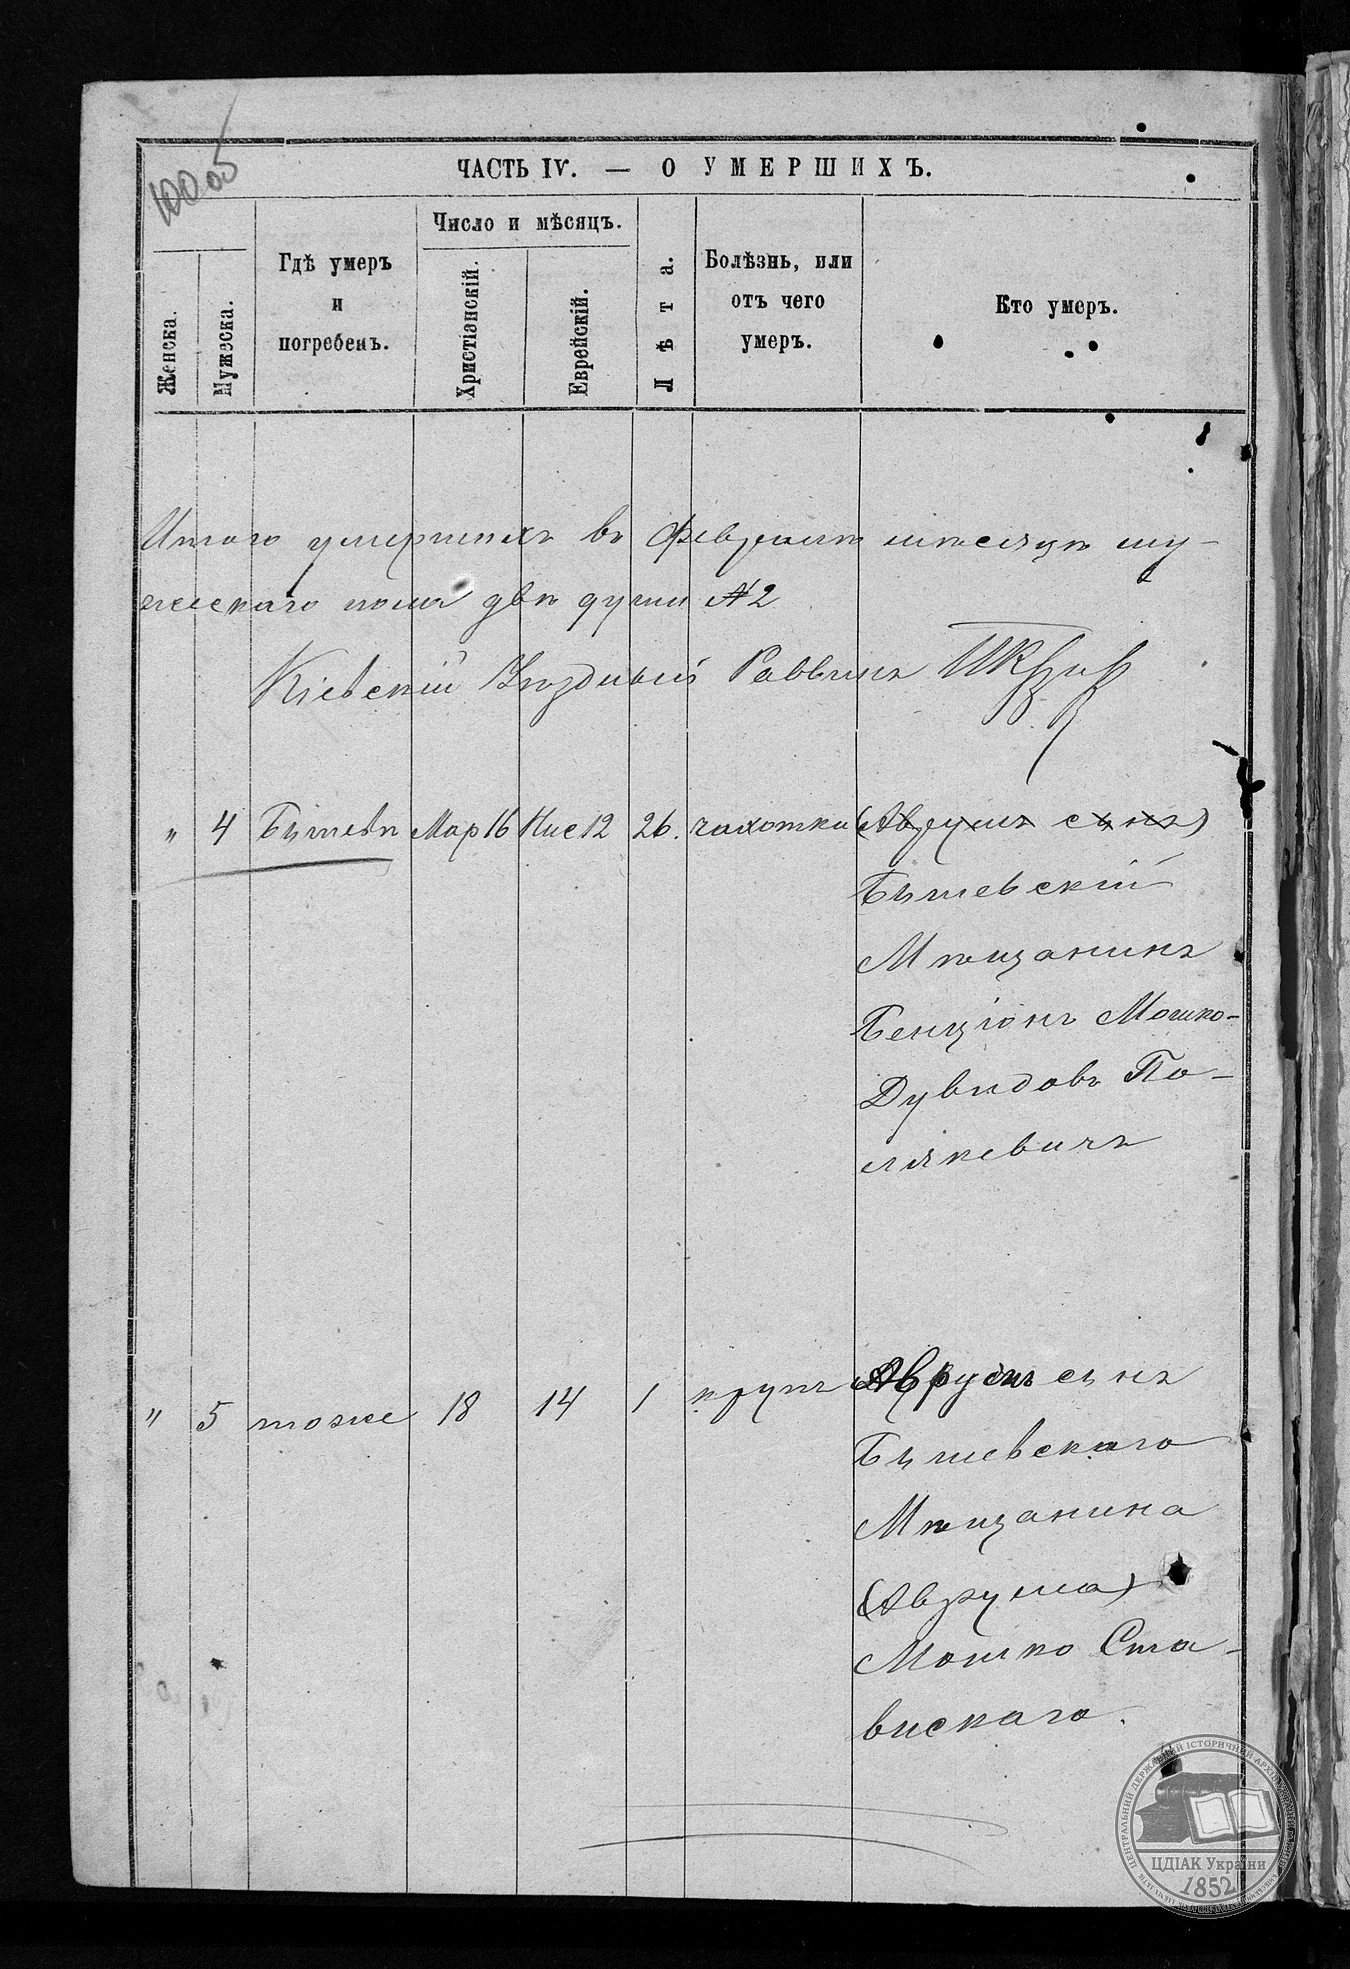 100 об
ЧАСТЬ IV. — О УМЕРШИХЪ.
Женска.
Мужеска.
Гдѣ умеръ
и
погребенъ.
Число и мѣсяцъ.
Христіанскій.
Еврейскій.
Лѣта.
Болѣзнь, или
отъ чего
умеръ.
Кто умеръ.
Итого умершихъ въ Февралѣ мѣсяцѣ му-
жескаго пола двѣ души № 2
Кіевскій Уѣздный Раввинъ
" 4 Бышевъ Мар 16 Нис 12 26. чахотка (Аврумъ сынъ)
Бышевскій
Мѣщанинъ
Бенціонъ Мошко-
Дувидовъ По-
ляковичъ
" 5 тоже 18 14 1 крупъ Аврумъ сынъ
Бышевскаго
Мѣщанина
(Аврума)
Мошко Ста-
вискаго.
ЦЕНТРАЛЬНИЙ ДЕРЖАВНИЙ ІСТОРИЧНИЙ АРХІВ УКРАЇНИ
ЦДІАК України
1852